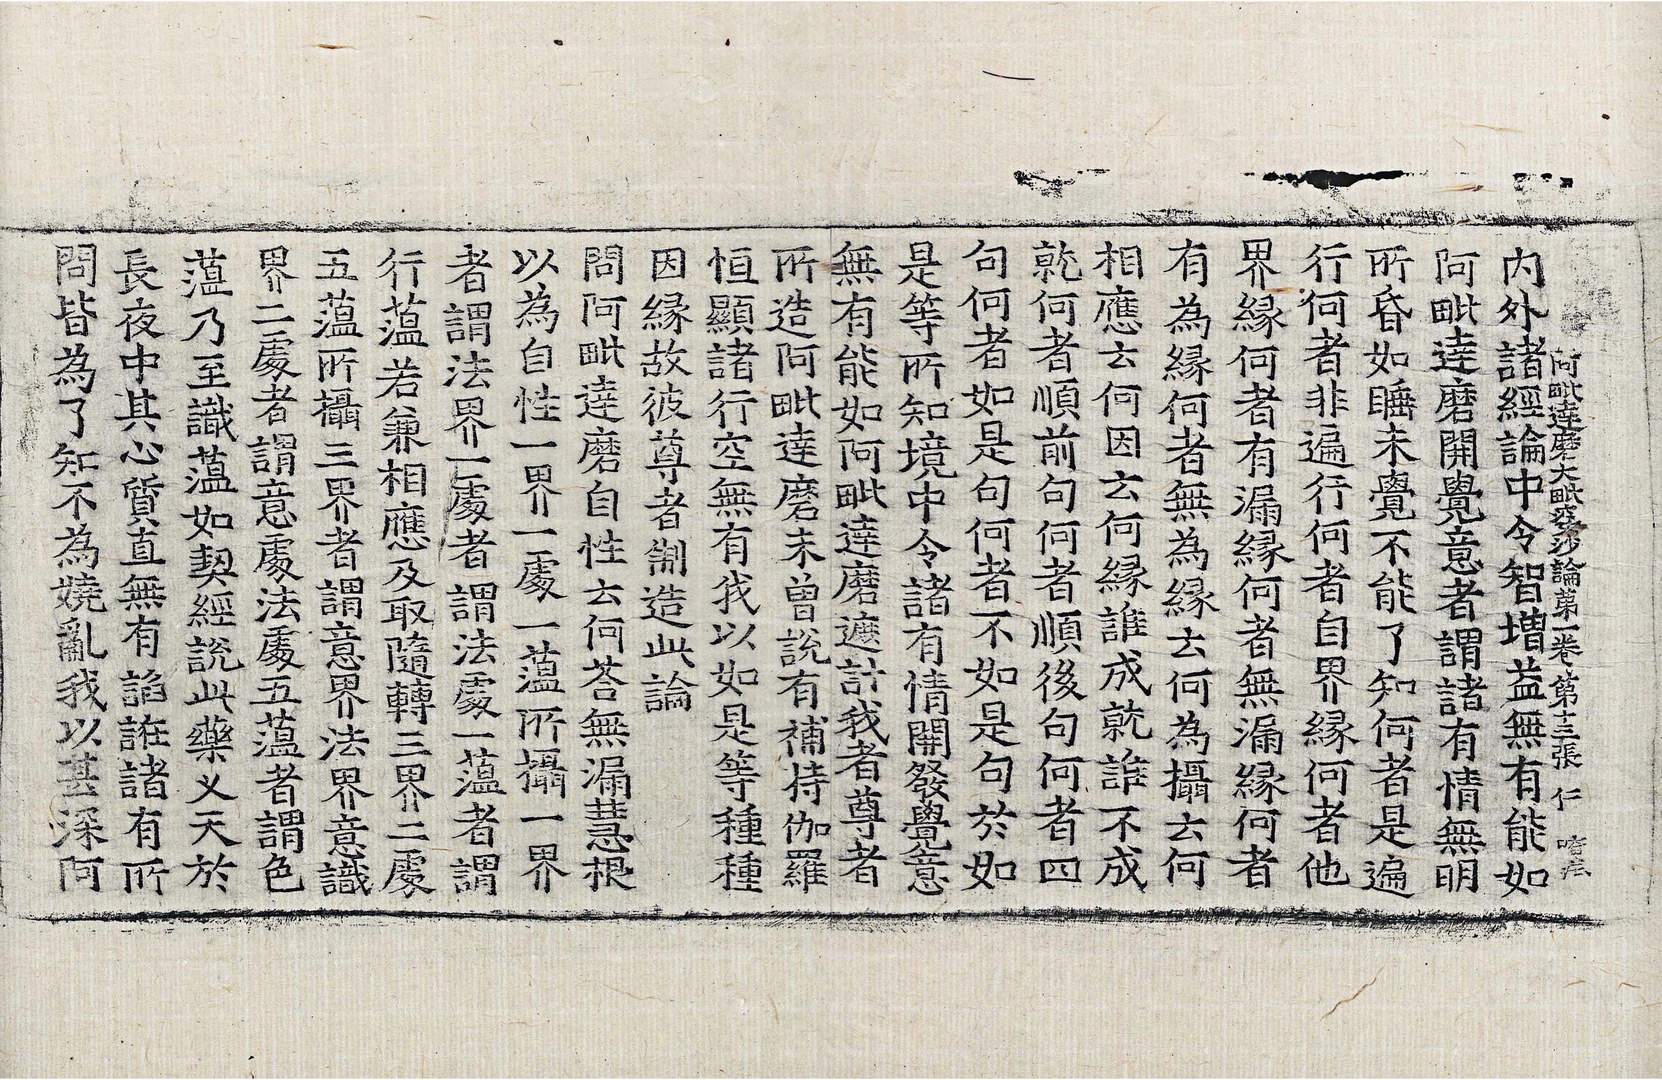 阿毗達磨大毗婆沙論第一卷 第十三張 仁
內外諸經論中令智增益無有能如
阿毗達磨開覺意者謂諸有情無明
所昏如睡未覺不能了知何者是遍
行何者非遍行何者自界緣何者他
界緣何者有漏緣何者無漏緣何者
有為緣何者無為緣云何為攝云何
相應云何因云何緣誰成就誰不成
就何者順前句何者順後句何者四
句何者如是句何者不如是句於如
是等所知境中令諸有情開發覺意
無有能如阿毗達磨遮計我者尊者
所造阿毗達磨未曾說有補特伽羅
恒顯諸行空無有我以如是等種種
因緣故彼尊者制造此論
問阿毗達磨自性云何荅無漏慧根
以為自性一界一處一蘊所攝一界
者謂法界一處者謂法處一蘊者謂
行蘊若兼相應及取隨轉三界二處
五蘊所攝三界者謂意界法界意識
界二處者謂意處法處五蘊者謂色
蘊乃至識蘊如契經說此藥叉天於
長夜中其心質直無有諂誑諸有所
問皆為了知不為嬈亂我以甚深阿